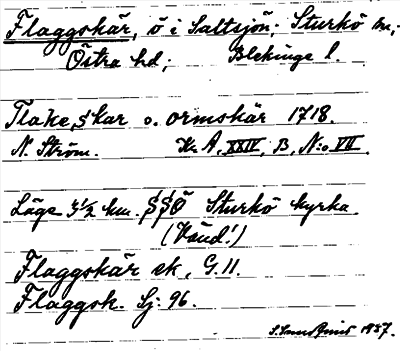 Flaggskär, ö i Saltsjön; Sturkö sn;
Östra hd; Blekinge l.
Flake,skar o. ormskär 1718.
N. Ström. K: A, XXIV, B, N:o VII.
Läge 3 1/2 km. SSÖ Sturkö kyrka.
(Vänd!)
Flaggskär ek, G.11.
Flaggsk. Sj. 96.
1957.